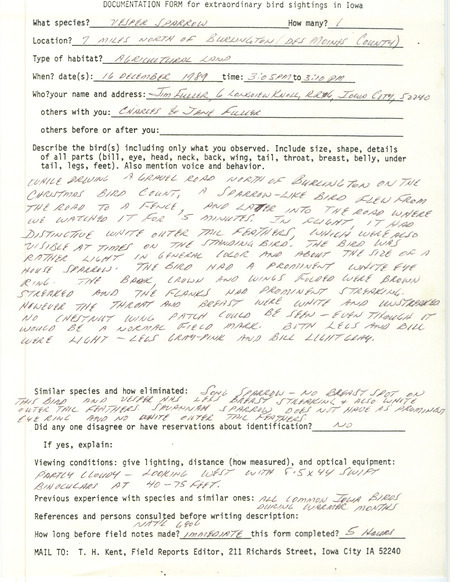 DOCUMENTATION FORM for extraordinary bird sightings in Iowa
What species? VESPER SPARROW How many? 1
Location? 7 MILES NORTH OF BURLINGTON (DES MOINES COUNTY)
Type of habitat? AGRICULTURAL LAND
When? date(s): 16 DECEMBER 1989 time: 3:05PM to 3:10 PM
Who?your name and address: JIM FULLER, 6 LONGVIEW KNOLL, RR#6, IOWA CITY, 52240
others with you: CHARLES & JANE FULLER
others before or after you:
Describe the bird(s) including only what you observed. Include size, shape, details
of all parts (bill, eye, head, neck, back, wing, tail, throat, breast, belly, under
tail, legs, feet). Also mention voice and behavior.
WHILE DRIVING A GRAVEL ROAD NORTH OF BURLINGTON ON THE
CHRISTMAS BIRD COUNT, A SPARROW-LIKE BIRD FLEW FROM
THE ROAD TO A FENCE, AND LATER INTO THE ROAD WHERE
WE WATCHED IT FOR 5 MINUTES. IN FLIGHT, IT HAD
DISTINCTIVE WHITE OUTER TAIL FEATHERS, WHICH WERE ALSO
VISIBLE AT TIMES ON THE STANDING BIRD. THE BIRD WAS
RATHER LIGHT IN GENERAL COLOR AND ABOUT THE SIZE OF A
HOUSE SPARROW. THE BIRD HAD A PROMINENT WHITE EYE
RING. THE BACK, CROWN AND WINGS FOLDED WERE BROWN
STREAKED AND THE FLANKS HAD PROMINENT STREAKING.
HOWEVER THE THROAT AND BREAST WERE WHITE AND UNSTREAKED
NO CHESTNUT WING PATCH COULD BE SEEN - EVEN THOUGH IT
WOULD BE A NORMAL FIELD MARK. BOTH LEGS AND BILL
WERE LIGHT - LEGS GRAY-PINK AND BILL LIGHT GRAY.
Similar species and how eliminated: SONG SPARROW - NO BREAST SPOT ON
THIS BIRD AND VESPER HAS LESS BREAST STREAKING & ALSO WHITE
OUTER TAIL FEATHERS. SAVANNAH SPARROW DOES NOT HAVE AS PROMINENT
EYE RING AND NO WHITE OUTER TAIL FEATHERS.
Did any one disagree or have reservations about identification? NO
If yes, explain:
Viewing conditions: give lighting, distance (how measured), and optical equipment:
PARTLY CLOUDY - LOOKING WEST WITH 8.5 X 44 SWIFT
BINOCULARS AT 40-75 FEET.
Previous experience with species and similar ones: ALL COMMON IOWA BIRDS
DURING WARMER MONTHS
References and persons consulted before writing description:
NAT'L GEOG
How long before field notes made? IMMEDIATE this form completed? 5 HOURS
MAIL TO: T. H. Kent, Field Reports Editor, 211 Richards Street, Iowa City IA 52240